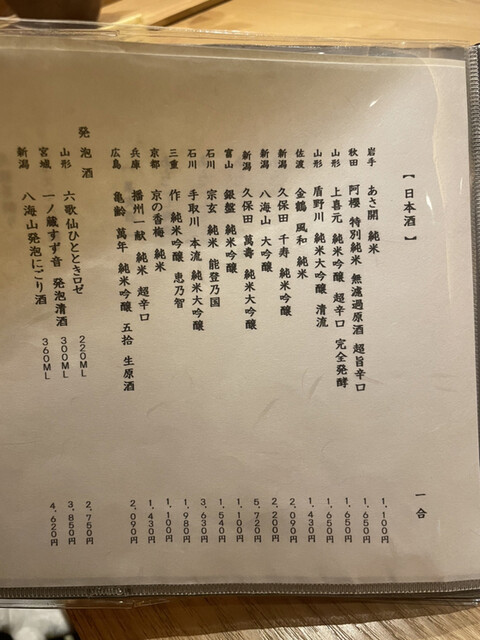 【日本酒】 一合
岩手 あさ開 純米 1,100円
秋田 阿櫻 特別純米 無濾過原酒 超旨辛口 1,650円
山形 上喜元 純米吟醸 超辛口 完全発酵 1,650円
山形 盾野川 純米大吟醸 清流 1,650円
佐渡 金鶴 風和 純米 1,430円
新潟 久保田 千寿 純米吟醸 2,090円
新潟 八海山 大吟醸 2,200円
新潟 久保田 萬壽 純米大吟醸 5,720円
富山 銀盤 純米吟醸 1,100円
石川 宗玄 純米 能登乃国 1,540円
石川 手取川 本流 純米大吟醸 3,630円
三重 作 純米吟醸 恵乃智 1,980円
京都 京の香梅 純米 1,100円
兵庫 播州一献 純米 超辛口 1,430円
広島 亀齢 萬年 純米吟醸 五拾 生原酒 2,090円
発泡酒
山形 六歌仙ひとときロゼ 220ML 2,750円
宮城 一ノ蔵すず音 発泡清酒 300ML 3,850円
新潟 八海山発泡にごり酒 360ML 4,620円